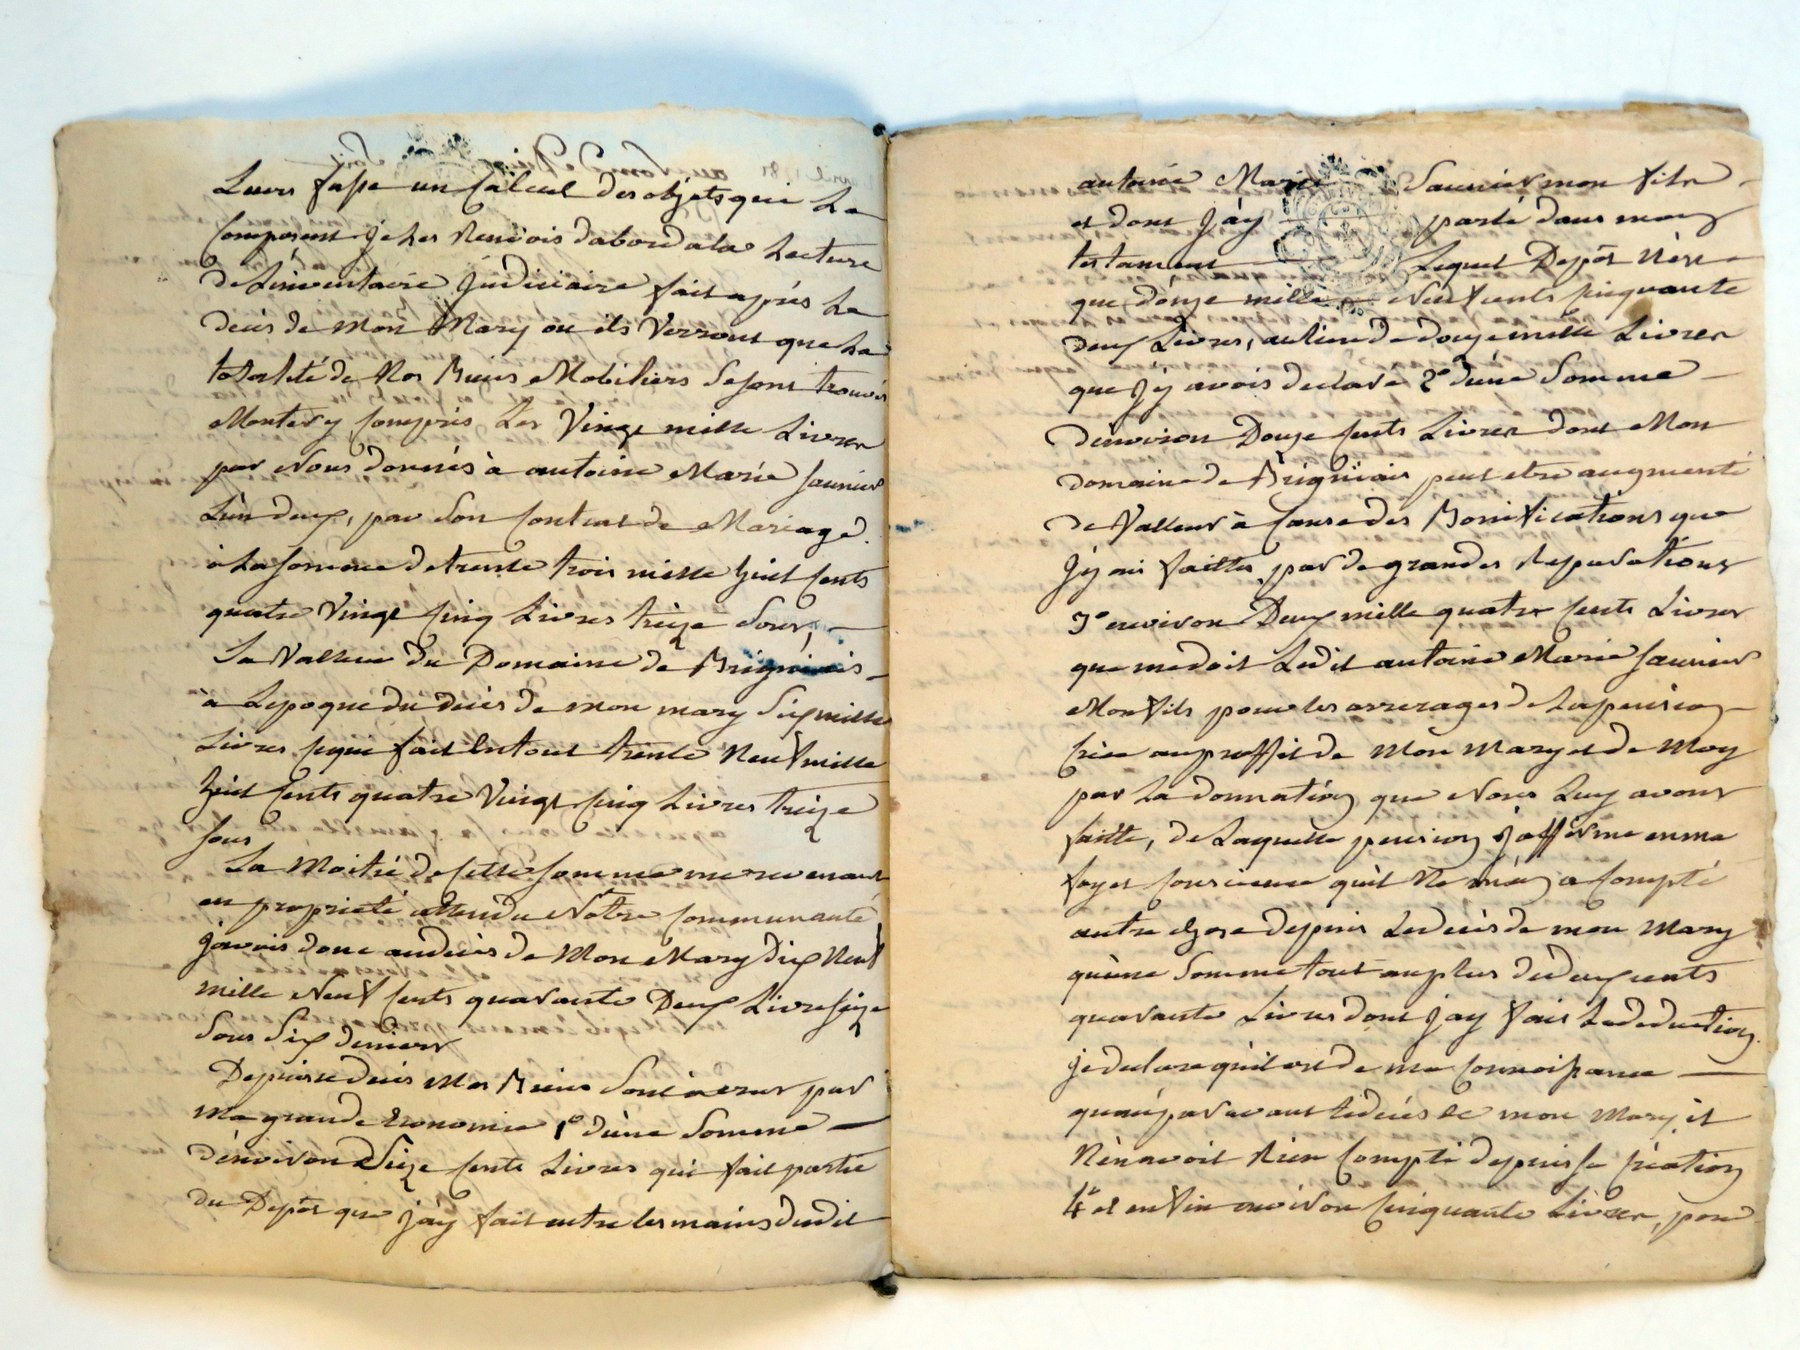 Leurs fasse un Calcul des objets qui La
Composent je Les Renvois dabord a la Lecture
de Linventaire judiciaire fait après Le
deces de mon Mary ou ils Verront que La
totalité de Nos Biens Mobiliers Se sont trouvés
Monter y Compris Les Vingt mille Livres
par Nous donnés à antoine Marie Saunier
L'un deux, par Son Contrat de Mariage.
à La somme de trente trois mille huit Cents
quatre Vingt Cinq Livres treize Sous,
La Valleur du Domaine de Brignais
à Lepoque du deces de mon mary Six mille
Livres Cqui fait En tout trente Neuf mille
huit Cents quatre Vingt Cinq Livres treize
Sous
La Moitié de Cette somme me revenant
en proprieté attendu Notre Communauté
javois donc au deces de Mon Mary Dix Neuf
mille Neuf Cents quarante Deux Livres seize
Sous Six deniers
Depuis se deces Mes Biens Sont accrus par
Ma grande Economie 1º d'une Somme
d'environ Seize Cents Livres qui fait partie
du Depôt que j'ay fait entre les mains dudit
antoine Marie Saunier mon fils
et dont j'ay parlé dans mon
testament Lequel Depôt N'est
que d'onze mille Neuf Cents Cinquante
deux Livres, au lieu de douze mille Livres
que j'y avois declaré 2º d'une Somme
denviron Douze Cents Livres dont Mon
domaine de Brignais peut etre augmenté
de Valleur à Cause des Bonifications que
j'y ai faittes par de grandes Reparations
3º environ Deux mille quatre Cents Livres
que me doit Ledit antoine Marie Saunier
Mon fils pour les arrerages de La pension
Crée au proffit de Mon Mary et de Moy
par La donnation que Nous Luy avons
faitte, de Laquelle pension j'affirme en ma
foy et Conscience qu'il Ne m'en a Compté
autre chose depuis Le deces de mon Mary
qu'une Somme tout au plus de deux cents
quarante Livres dont j'ay fait La deduction
je declare qu'il est de ma Connoissance
qu'auparavant Le deces de mon Mary il
N'en avoit Rien Compté depuis sa Création
4º et enfin environ Cinquante Livres, pour